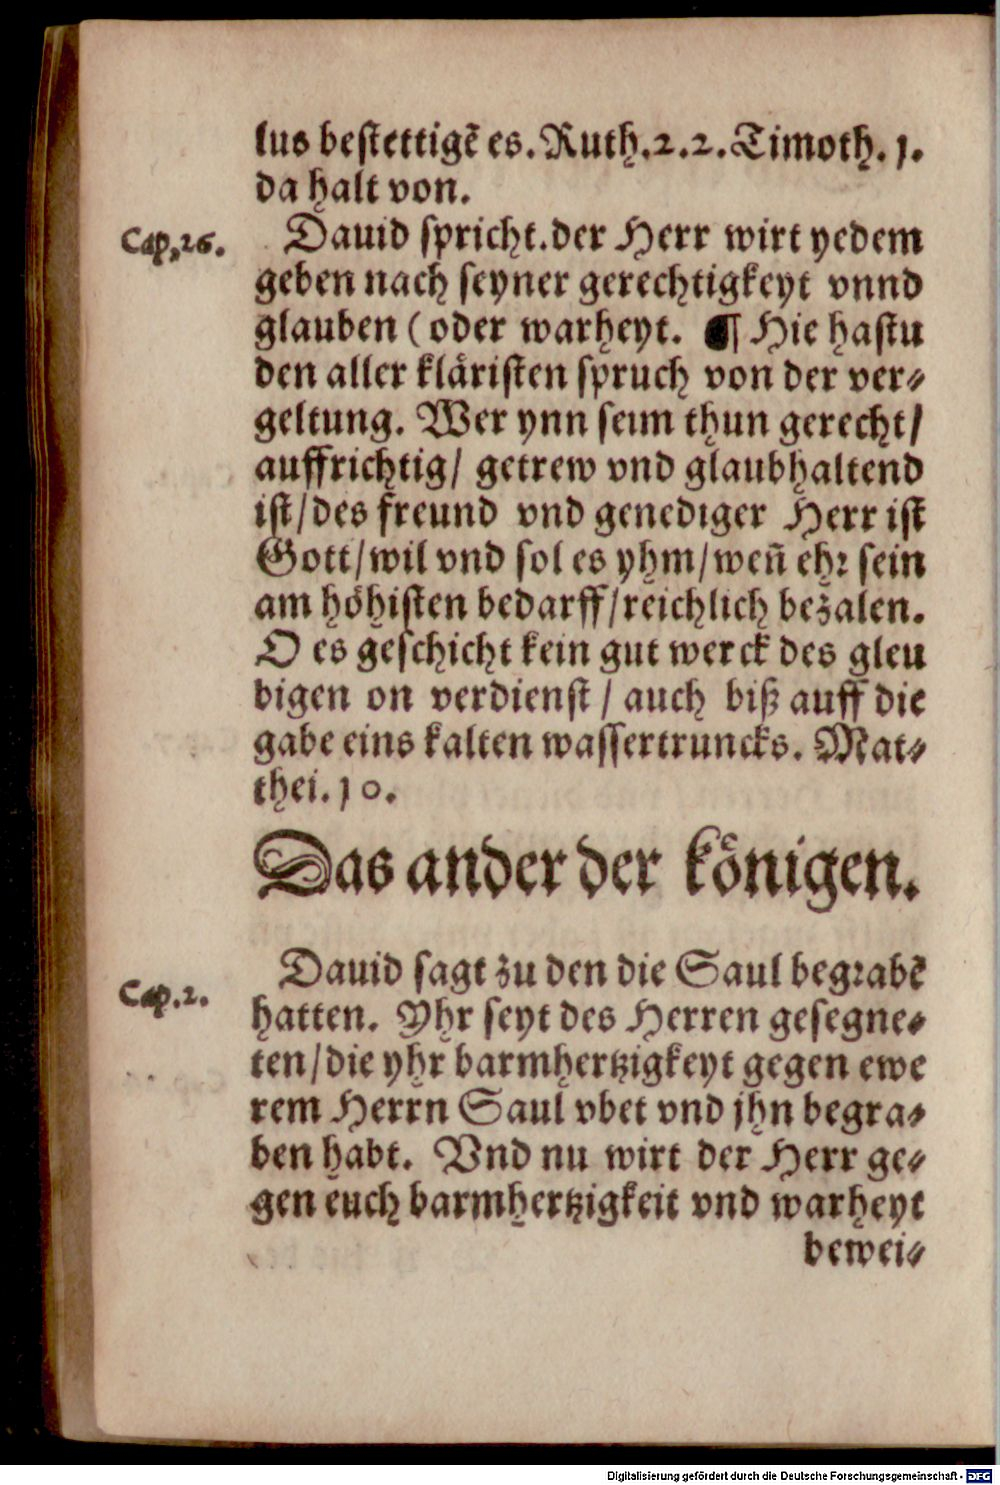 lus bestettigē es. Ruth.2.2. Timoth. 1.
da halt von.
Cap,26.
Dauid spricht. der Herr wirt yedem
geben nach seyner gerechtigkeyt vnnd
glauben (oder warheyt. ¶ Hie hastu
den aller kläristen spruch von der ver⸗
geltung. Wer ynn seim thun gerecht/
auffrichtig/ getrew vnd glaubhaltend
ist/des freund vnd genediger Herr ist
Gott/wil vnd sol es yhm/weñ ehr sein
am höhisten bedarff/reichlich bezalen.
O es geschicht kein gut werck des gleu
bigen on verdienst / auch biß auff die
gabe eins kalten wassertruncks. Mat⸗
thei. 10.
Das ander der königen.
Cap.2.
Dauid sagt zu den die Saul begrabē
hatten. Yhr seyt des Herren gesegne⸗
ten/die yhr barmhertzigkeyt gegen ewe
rem Herrn Saul vbet vnd jhn begra⸗
ben habt. Vnd nu wirt der Herr ge⸗
gen euch barmhertzigkeit vnd warheyt
bewei⸗
Digitalisierung gefördert durch die Deutsche Forschungsgemeinschaft - DFG